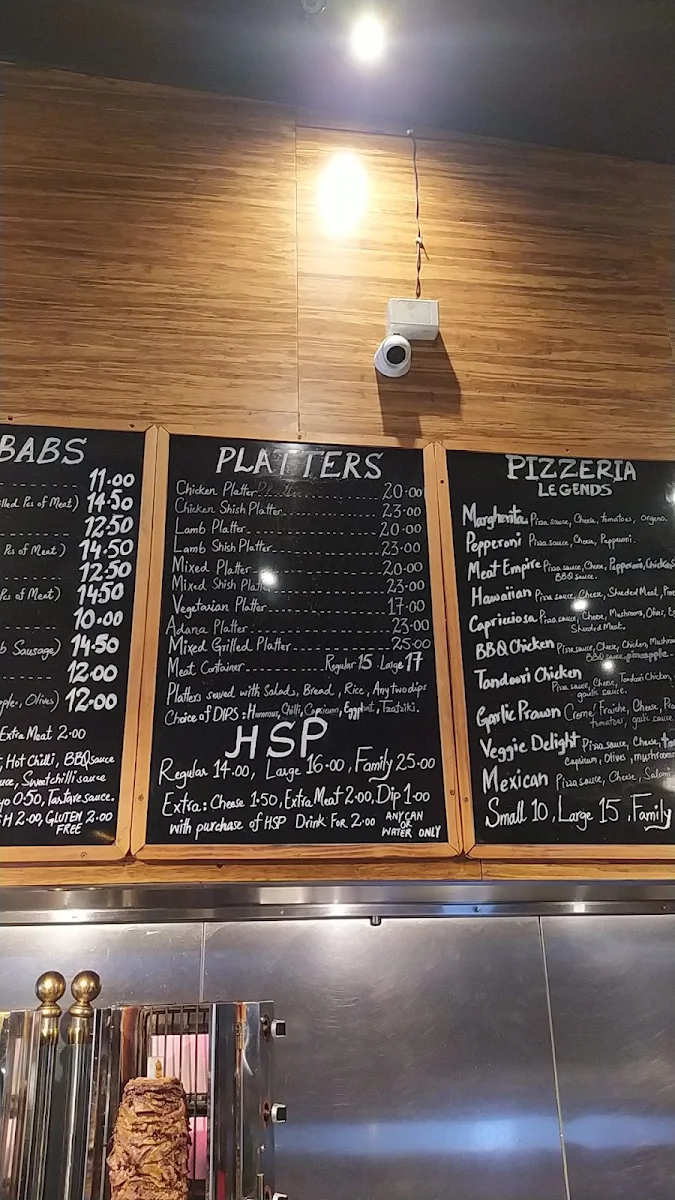 BABS
11.00
illed Pcs of Meat) 14.50
12.50
Pcs of Meat) 14.50
12.50
Pcs of Meat) 14.50
10.00
b Sausage) 14.50
12.00
pple, Olives) 12.00
Extra Meat 2.00
, Hot Chilli, BBQ sauce
uce, Sweetchilli sauce
yo 0.50, Tartare sauce.
H 2.00, GLUTEN 2.00
FREE
PLATTERS
Chicken Platter 20.00
Chicken Shish Platter 23.00
Lamb Platter 20.00
Lamb Shish Platter 23.00
Mixed Platter 20.00
Mixed Shish Platter 23.00
Vegetarian Platter 17.00
Adana Platter 23.00
Mixed Grilled Platter 25.00
Meat Container Regular 15 Large 17
Platters served with Salads, Bread, Rice, Any two dips
Choice of DIPS: Hummus, Chilli, Capsicum, Eggplant, Tzatziki.
HSP
Regular 14.00, Large 16.00, Family 25.00
Extra: Cheese 1.50, Extra Meat 2.00, Dip 1.00
with purchase of HSP Drink For 2.00 ANY CAN
OR
WATER ONLY
PIZZERIA
LEGENDS
Margherita Pizza sauce, Cheese, tomatoes, oregano.
Pepperoni Pizza sauce, Cheese, Pepperoni.
Meat Empire Pizza sauce, Cheese, Pepperoni, Chicken, S
BBQ sauce.
Hawaiian Pizza sauce, Cheese, Shreded Meat, Pine
Capriciosa Pizza sauce, Cheese, Mushrooms, Olives,
Shreded Meat.
BBQ Chicken Pizza sauce, Cheese, Chicken, Mushroo
BBQ sauce, pineapple.
Tandoori Chicken Pizza sauce, Cheese, Tandoori Chicken,
garlic sauce.
Garlic Prawn Creme Fraiche, Cheese, Pra
tomatoes, garlic sauce
Veggie Delight Pizza sauce, Cheese, tom
capsicum, Olives, mushrooms
Mexican Pizza sauce, Cheese, Salami
Small 10, Large 15, Family